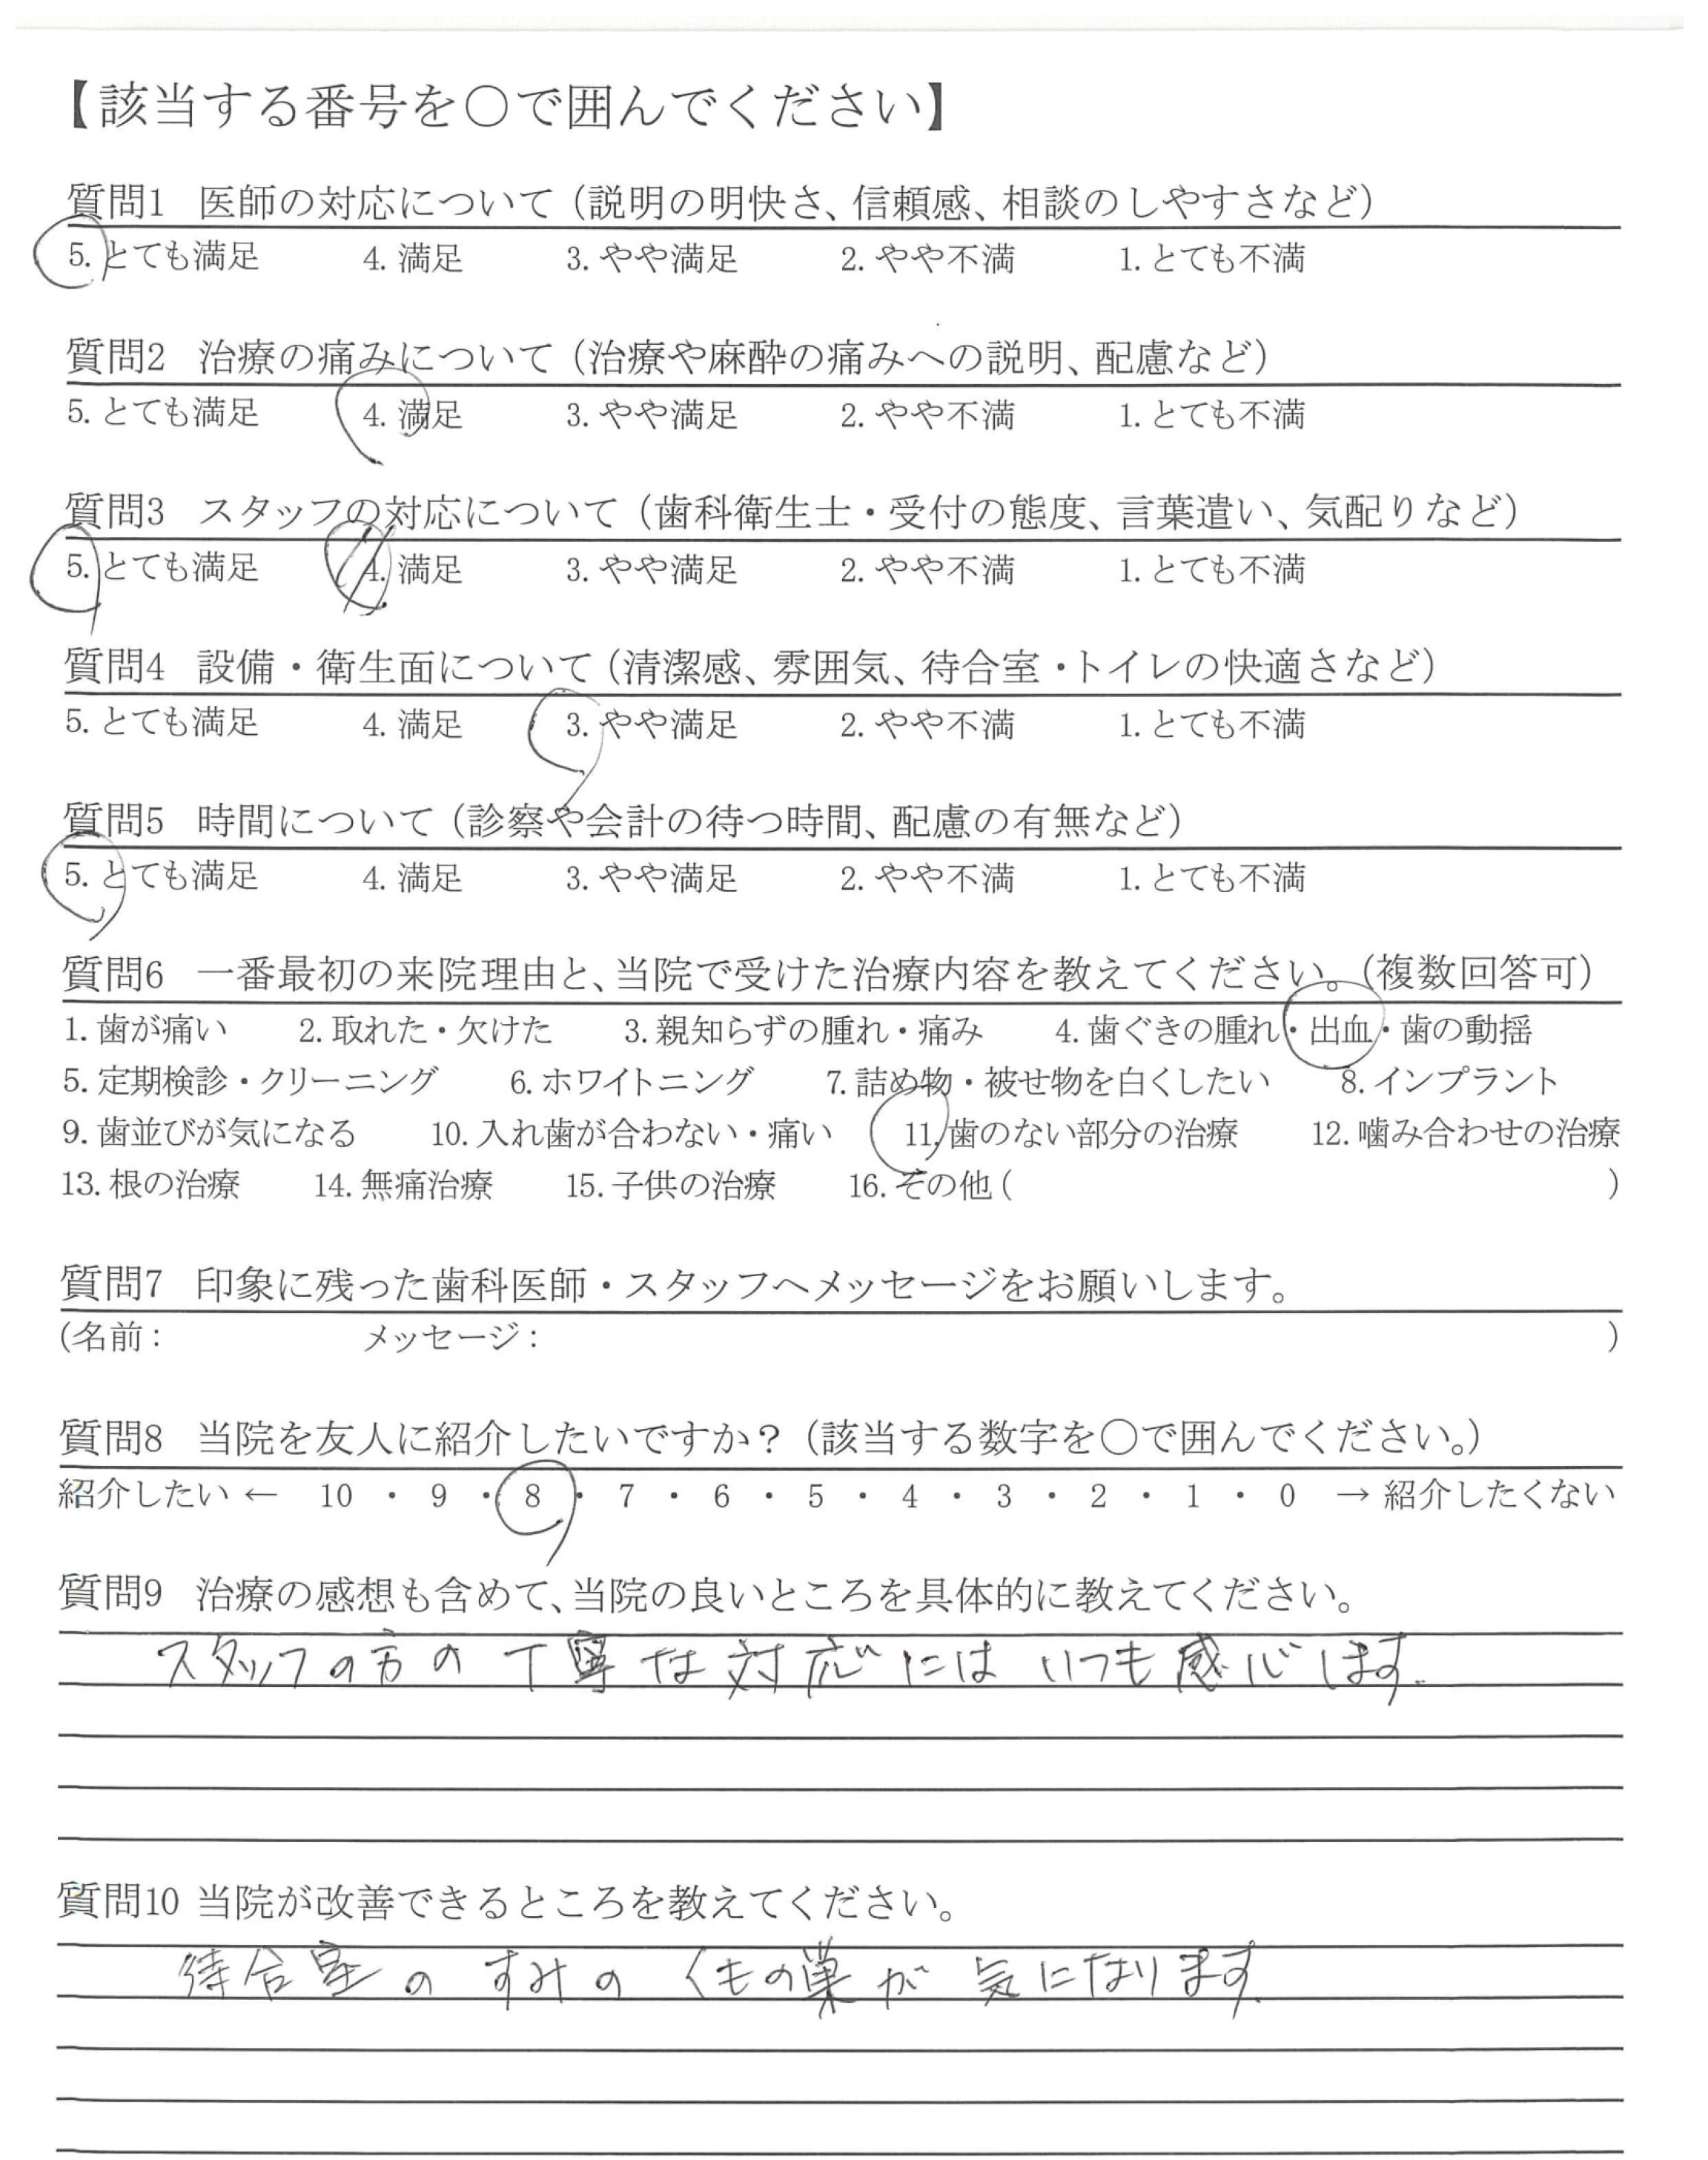 【該当する番号を○で囲んでください】
質問1 医師の対応について（説明の明快さ、信頼感、相談のしやすさなど）
5. とても満足 4. 満足 3. やや満足 2. やや不満 1. とても不満
質問2 治療の痛みについて（治療や麻酔の痛みへの説明、配慮など）
5. とても満足 4. 満足 3. やや満足 2. やや不満 1. とても不満
質問3 スタッフの対応について（歯科衛生士・受付の態度、言葉遣い、気配りなど）
5. とても満足 4. 満足 3. やや満足 2. やや不満 1. とても不満
質問4 設備・衛生面について（清潔感、雰囲気、待合室・トイレの快適さなど）
5. とても満足 4. 満足 3. やや満足 2. やや不満 1. とても不満
質問5 時間について（診察や会計の待つ時間、配慮の有無など）
5. とても満足 4. 満足 3. やや満足 2. やや不満 1. とても不満
質問6 一番最初の来院理由と、当院で受けた治療内容を教えてください。（複数回答可）
1. 歯が痛い 2. 取れた・欠けた 3. 親知らずの腫れ・痛み 4. 歯ぐきの腫れ・出血・歯の動揺
5. 定期検診・クリーニング 6. ホワイトニング 7. 詰め物・被せ物を白くしたい 8. インプラント
9. 歯並びが気になる 10. 入れ歯が合わない・痛い 11. 歯のない部分の治療 12. 噛み合わせの治療
13. 根の治療 14. 無痛治療 15. 子供の治療 16. その他（ ）
質問7 印象に残った歯科医師・スタッフへメッセージをお願いします。
（名前： メッセージ： ）
質問8 当院を友人に紹介したいですか？（該当する数字を○で囲んでください。）
紹介したい ← 10 ・ 9 ・ 8 ・ 7 ・ 6 ・ 5 ・ 4 ・ 3 ・ 2 ・ 1 ・ 0 → 紹介したくない
質問9 治療の感想も含めて、当院の良いところを具体的に教えてください。
スタッフの方の丁寧な対応にはいつも感心します.
質問10 当院が改善できるところを教えてください。
待合室のすみのくもの巣が気になります.